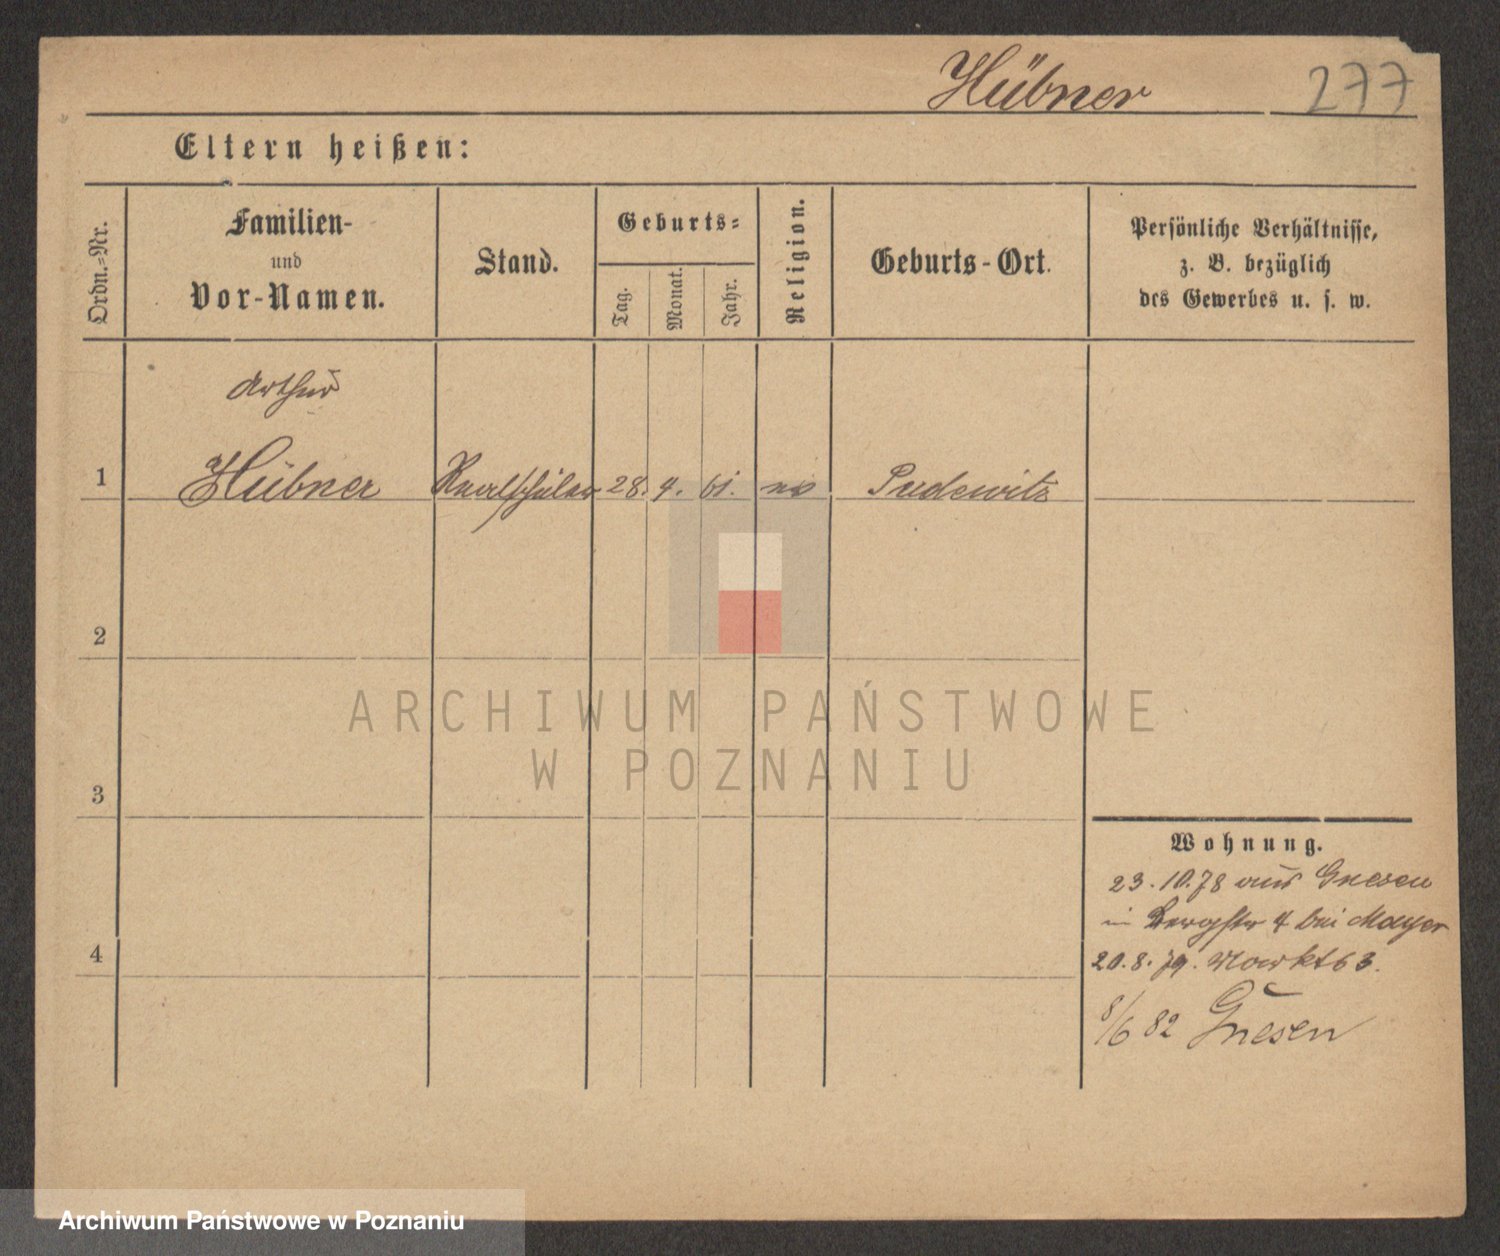 Hübner 277
Eltern heißen:
Ordn.=Nr.
Familien-
und
Vor-Namen.
Stand.
Geburts=
Tag.
Monat.
Jahr.
Religion.
Geburts-Ort.
Persönliche Verhältnisse,
z. B. bezüglich
des Gewerbes u. s. w.
Arthur
1 Hübner Realschüler 28. 4. 61. Pudewitz
2
3
4
Wohnung.
23.10.78 aus Gnesen
in Bergstr 4 bei Mayer
20.8.79. Markt 63.
8/6 82 Gnesen
ARCHIWUM PAŃSTWOWE
W POZNANIU
Archiwum Państwowe w Poznaniu